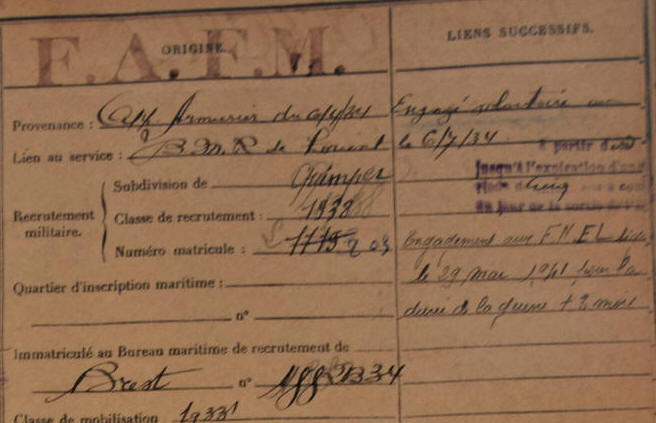 F.A.F.M.
ORIGINE.
Provenance : App Armurier du 6/7/34
Lien au service : B.M.R de Lorient
Recrutement militaire.
Subdivision de Quimper
Classe de recrutement : 1938
Numéro matricule : 1775
Quartier d'inscription maritime :
n°
Immatriculé au Bureau maritime de recrutement de
Brest n° B34
Classe de mobilisation : 1933
LIENS SUCCESSIFS.
Engagé volontaire
le 6/7/34
à partir
jusqu'à l'expiration
cinq
du jour de la sortie
Engagement aux F.N.F.L.
le 29 mai 1941 pour la
durée de la guerre + 3 mois